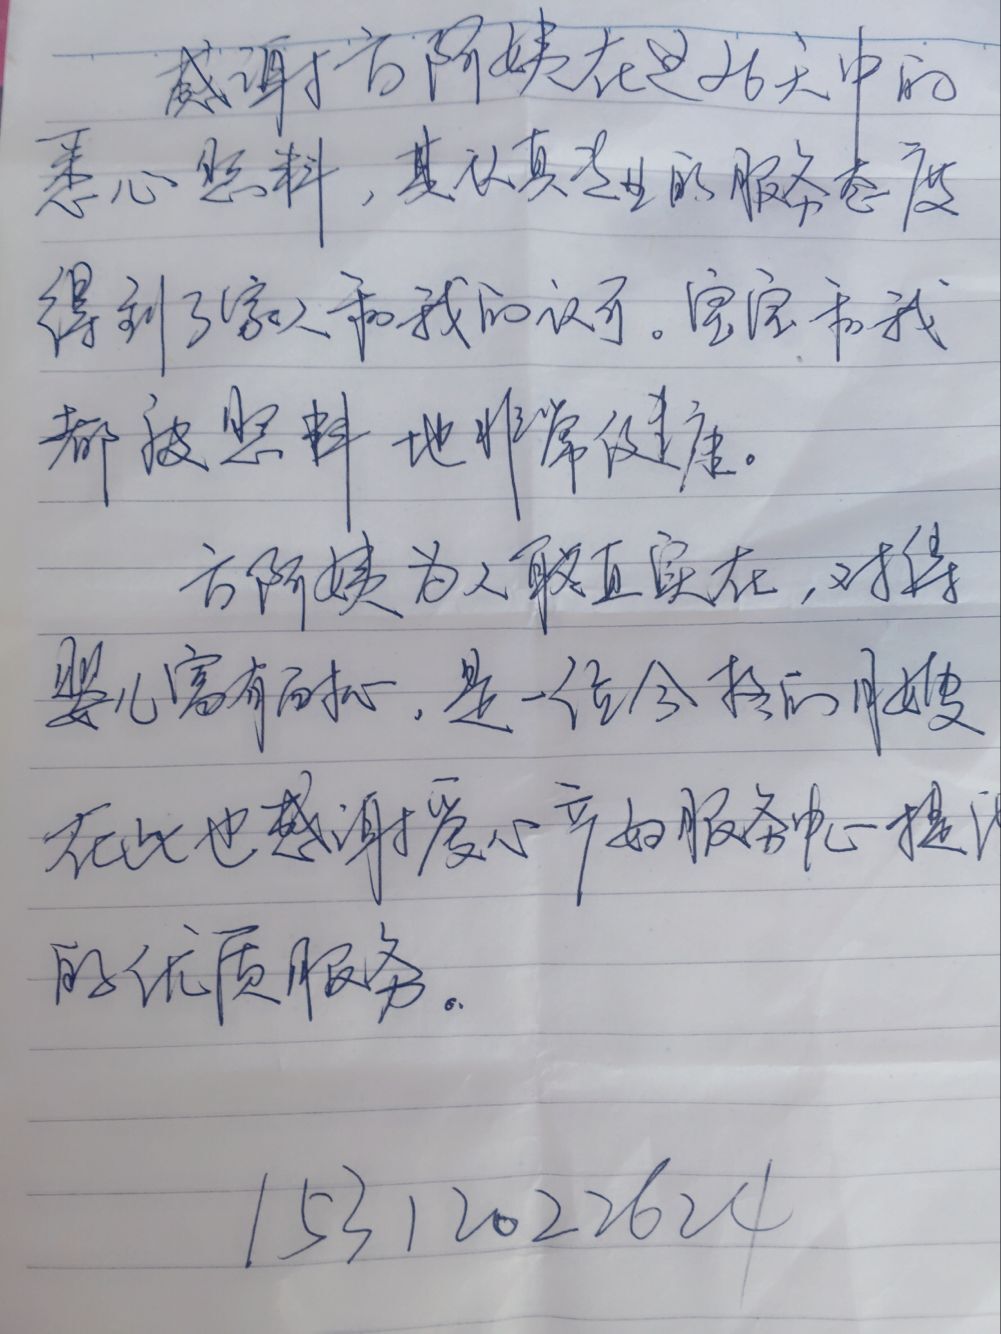 感谢方阿姨在这26天中的
悉心照料，其认真专业的服务态度
得到了家人和我的认可。宝宝和我
都被照料地非常健康。
方阿姨为人耿直实在，对待
婴儿富有耐心，是一位合格的月嫂
在此也感谢爱心产妇服务中心提供
的优质服务。
15312022624